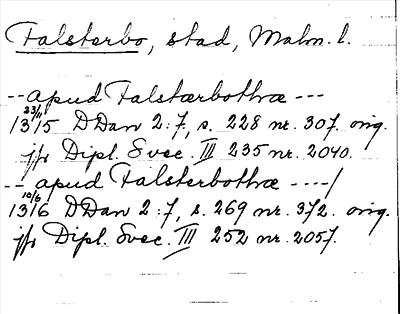 Falsterbo, stad, Malm. l.
-- apud Falstærbothræ ---
23/11 1315 DDan 2:7, s. 228 nr. 307. orig.
jfr Dipl. Svec. III 235 nr. 2040.
-- apud Falsterbothæ ----/
10/6 1316 DDan 2:7, s. 269 nr. 372. orig.
jfr Dipl. Svec. III 252 nr. 2057.